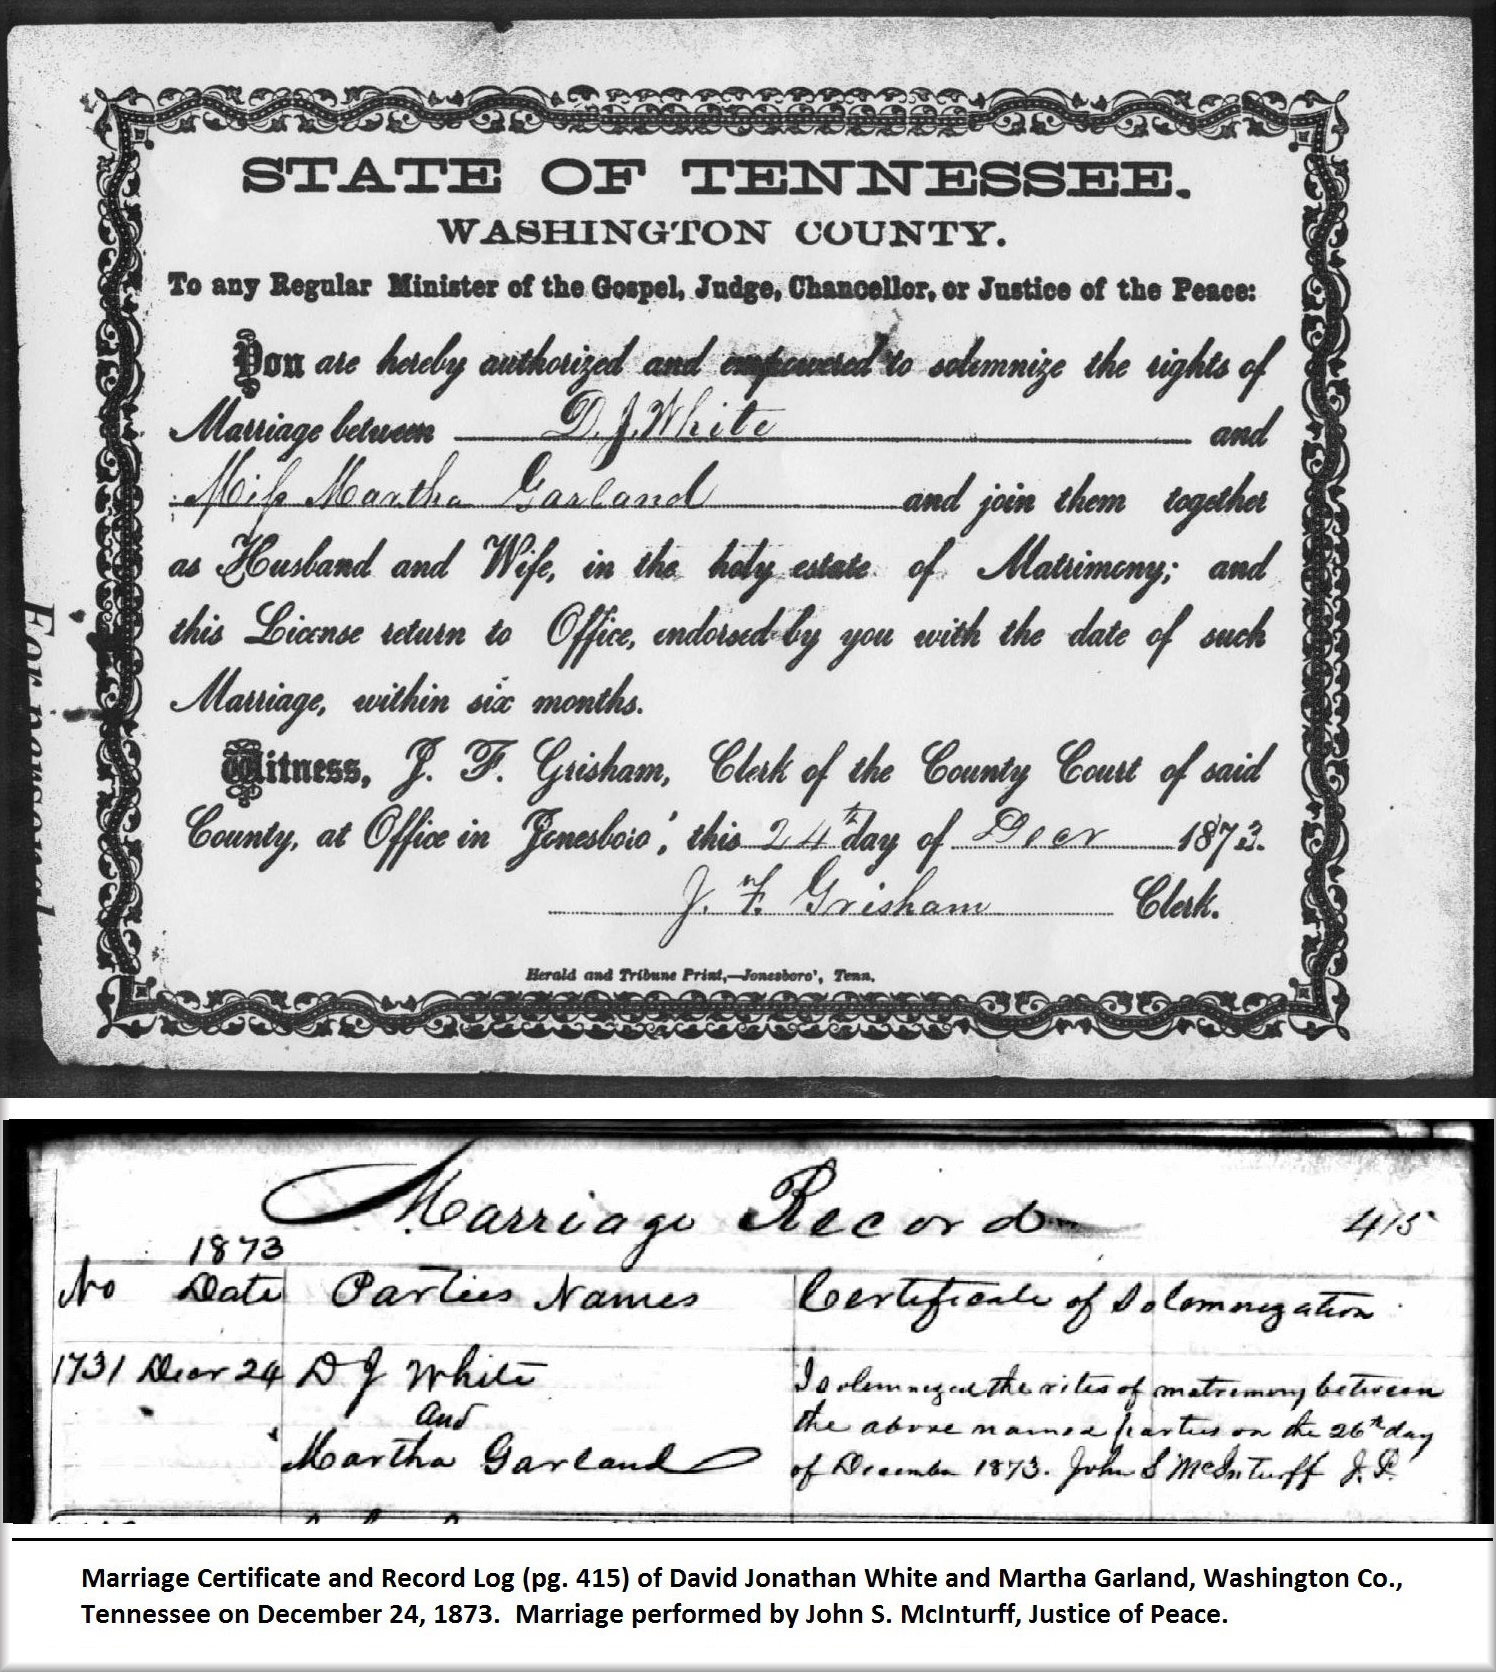 STATE OF TENNESSEE.
WASHINGTON COUNTY.
To any Regular Minister of the Gospel, Judge, Chancellor, or Justice of the Peace:
You are hereby authorized and empowered to solemnize the rights of
Marriage between D. J. White and
Miss Martha Garland and join them together
as Husband and Wife, in the holy estate of Matrimony; and
this License return to Office, endorsed by you with the date of such
Marriage, within six months.
Witness, J. F. Grisham, Clerk of the County Court of said
County, at Office in Jonesboro', this 24th day of Decr 1873.
J. F. Grisham Clerk.
Herald and Tribune Print,—Jonesboro', Tenn.
For
Marriage Record 415
1873
No Date Parties Names Certificate of Solemnization
1731 Decr 24 D J White I solemnized the rites of matrimony between
and the above named parties on the 26th day
Martha Garland of December 1873. John S McInturff J. P.
Marriage Certificate and Record Log (pg. 415) of David Jonathan White and Martha Garland, Washington Co.,
Tennessee on December 24, 1873. Marriage performed by John S. McInturff, Justice of Peace.